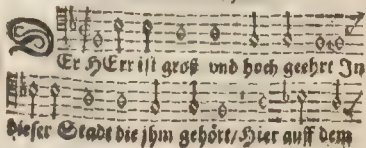 DEr HErr ist groß vnd hoch geehrt In
dieser Stadt die jhm gehört/Hier auff dem